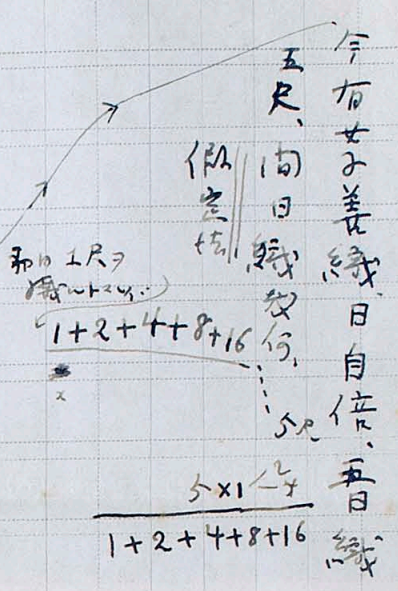 今有女子善織、日自倍、五日織
五尺、問日織幾何、
假定法
初日一尺ヲ
織
1+2+4+8+16
x
5尺
5×1
1+2+4+8+16